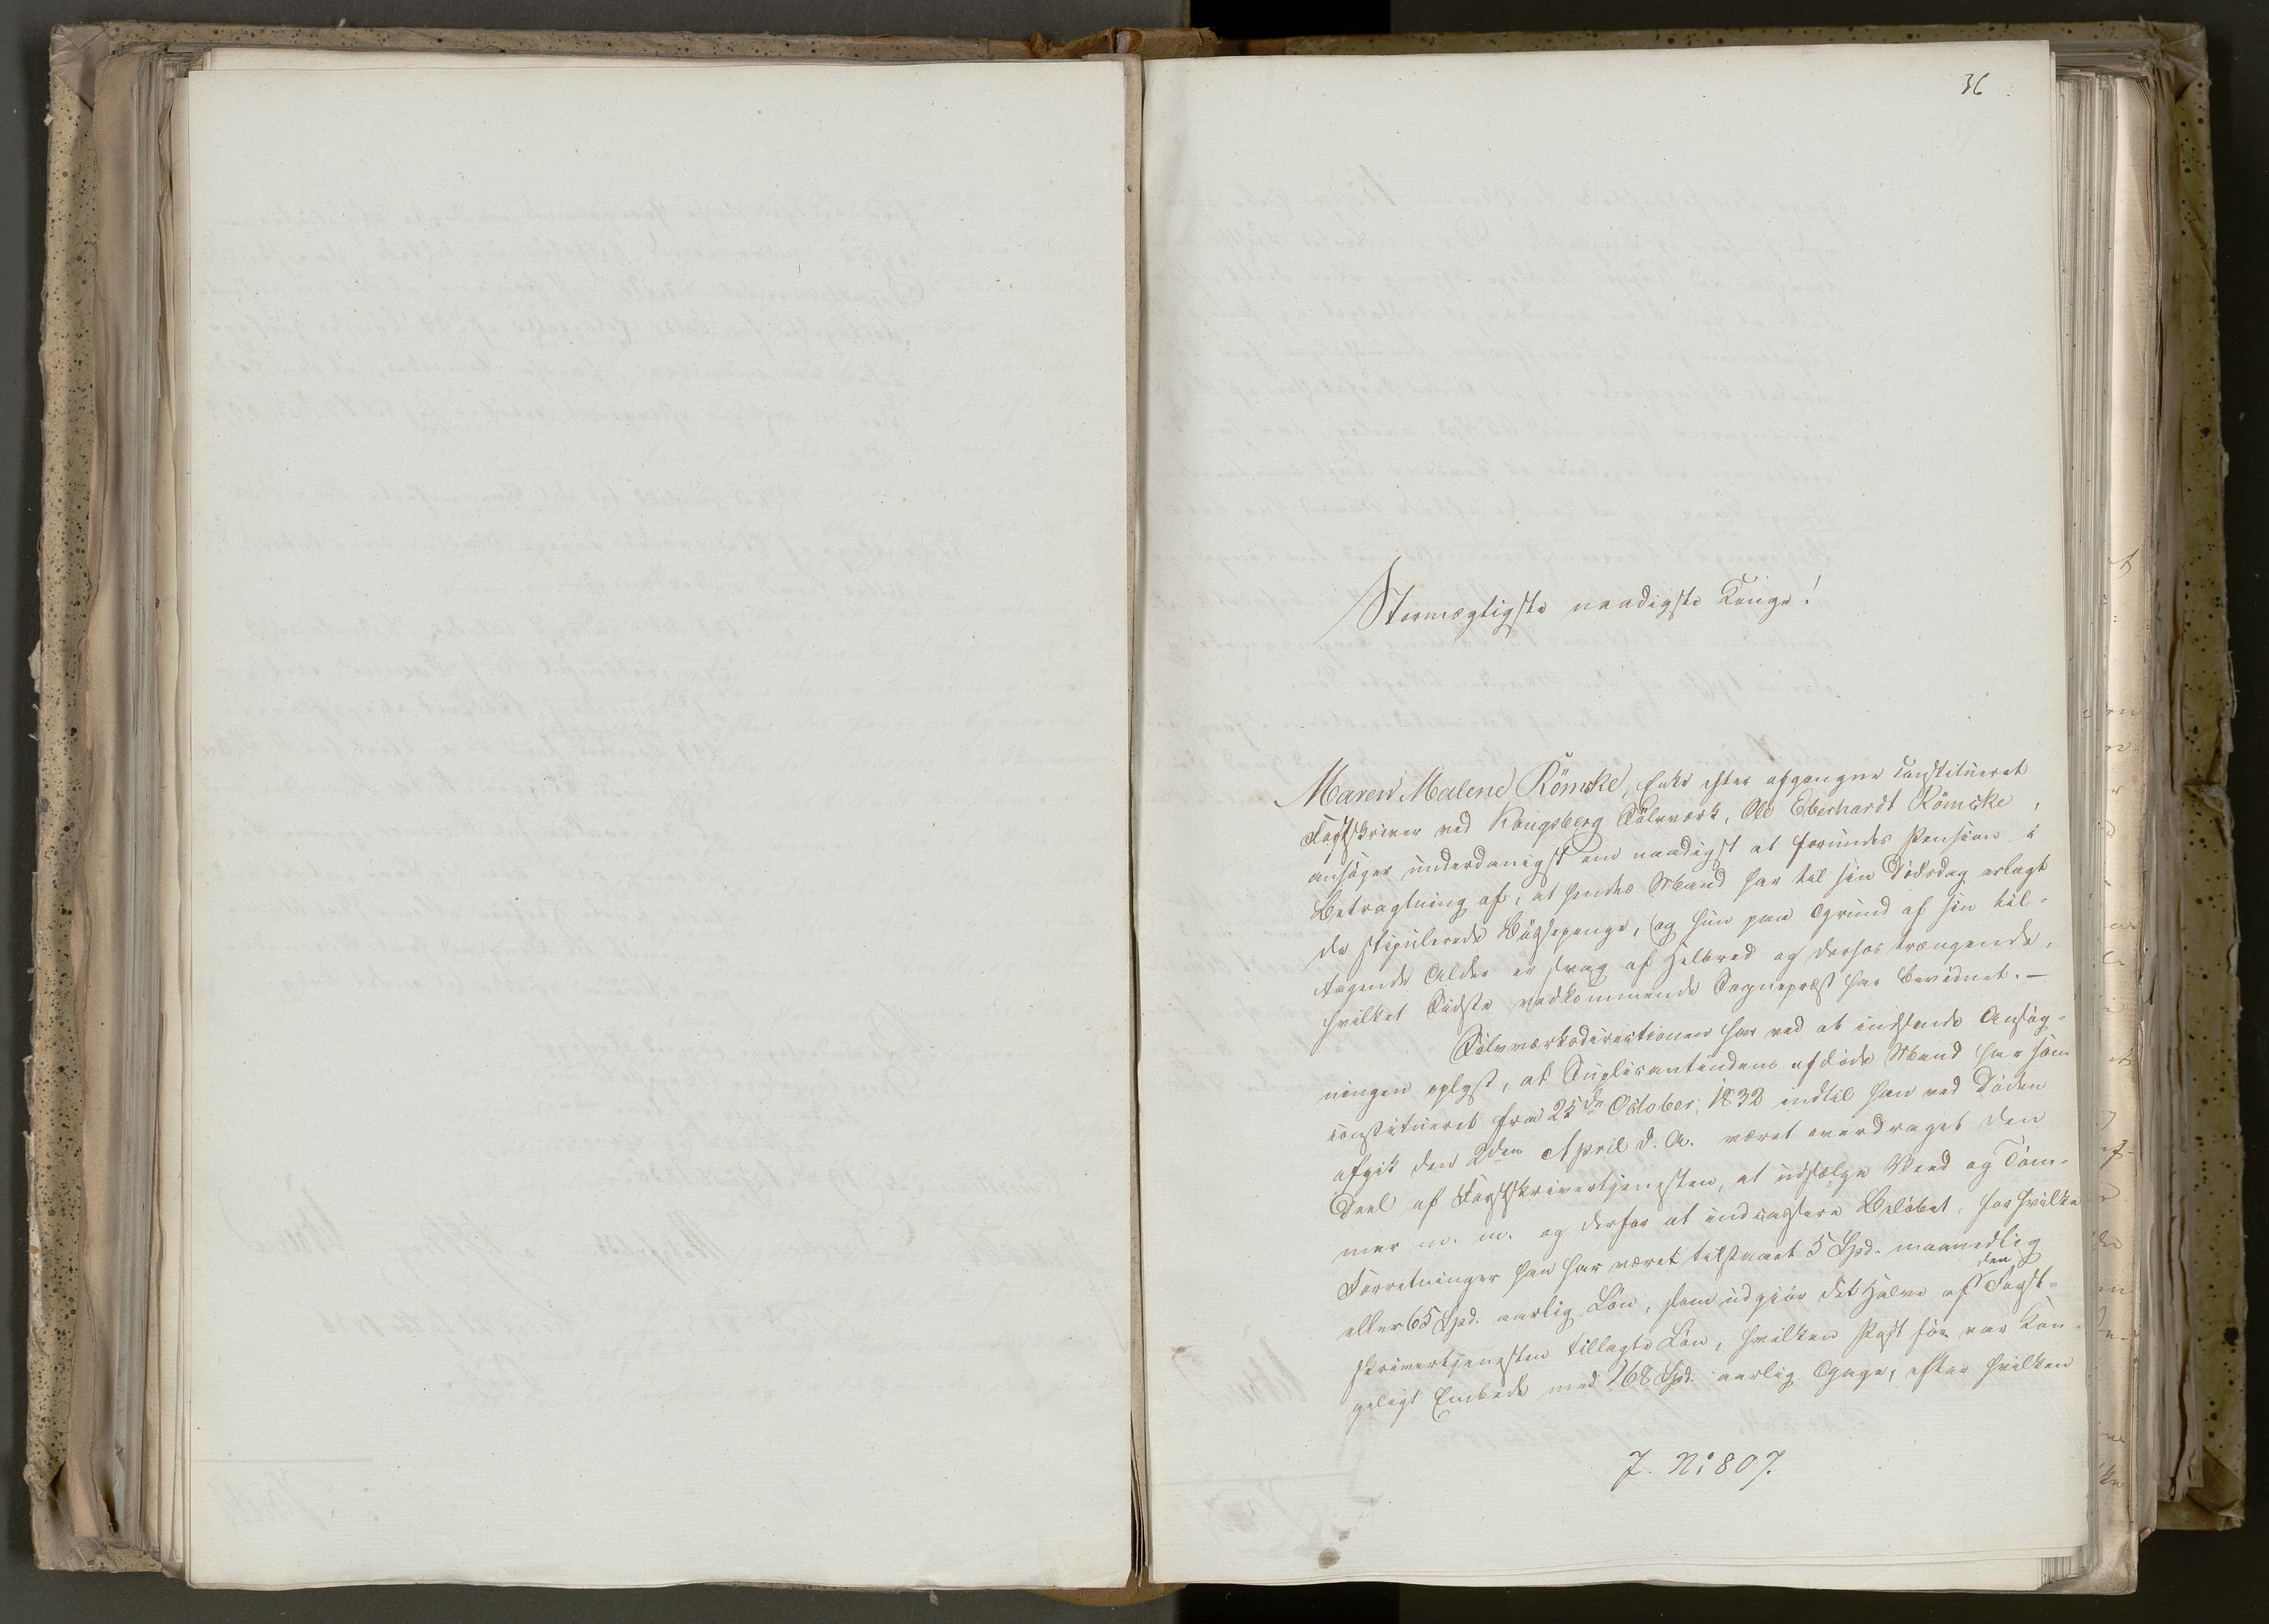 36
Stormægtigste naadigste Konge!
Maren Malene Römcke, Enke efter afgangne constitueret
Forstskriver ved Kongsberg Sölvværk, Ole Eberhardt Römcke,
ansöger underdanigst om naadigst at forundes Pension i
Betragtning af, at hendes Mand har til sin Dödsdag erlagt
de stipulerede Bössepenge, og hun paa Grund af sin til-
tagende Alder er svag af Helbred og derhos trængende,
hvilket Sidste vedkommende Sognepræst har bevidnet. —
Sölvværksdirectionen har ved at indsende Ansög-
ningen oplyst, at Supplicantindens afdöde Mand har som
constitueret fra 25de October 1832 indtil han ved Döden
afgik den 2den April d. A. været overdraget den
Deel af Forstskrivertjenesten, at udsælge Veed og Töm-
mer m. m. og derfor at indcassere Belöbet, for hvilke
Forretninger han har været tilstaaet 5 Spd. maanedlig
eller 65 Spd. aarlig Lön, som udgjör det Halve af den Forst-
skrivertjenesten tillagte Lön, hvilken Post för var Kon-
geligt Embede med 168 Spd. aarlig Gage, efter hvilken
J. No 807.